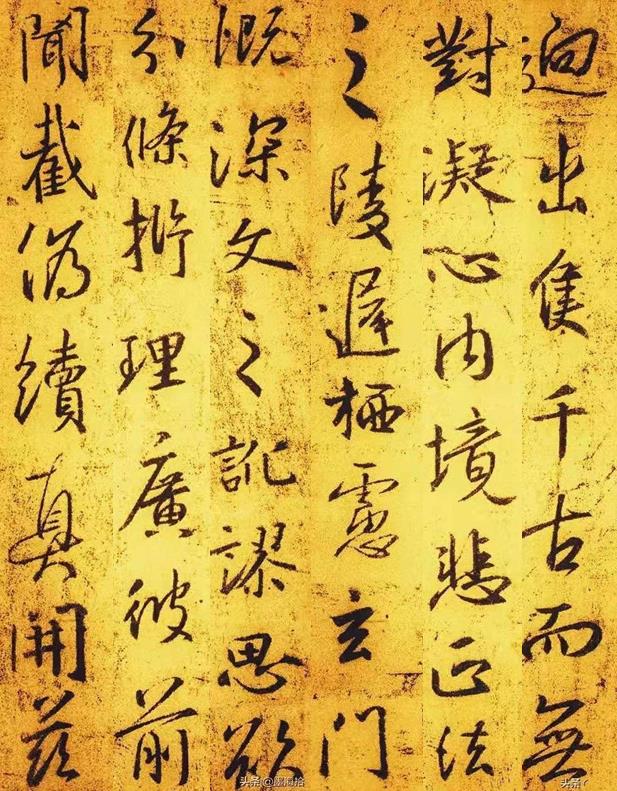 迥出隻千古而無
對凝心內境悲正法
之陵遲栖慮玄門
慨深文之訛謬思欲
分條析理廣彼前
聞截偽續真開茲
头条@
头条